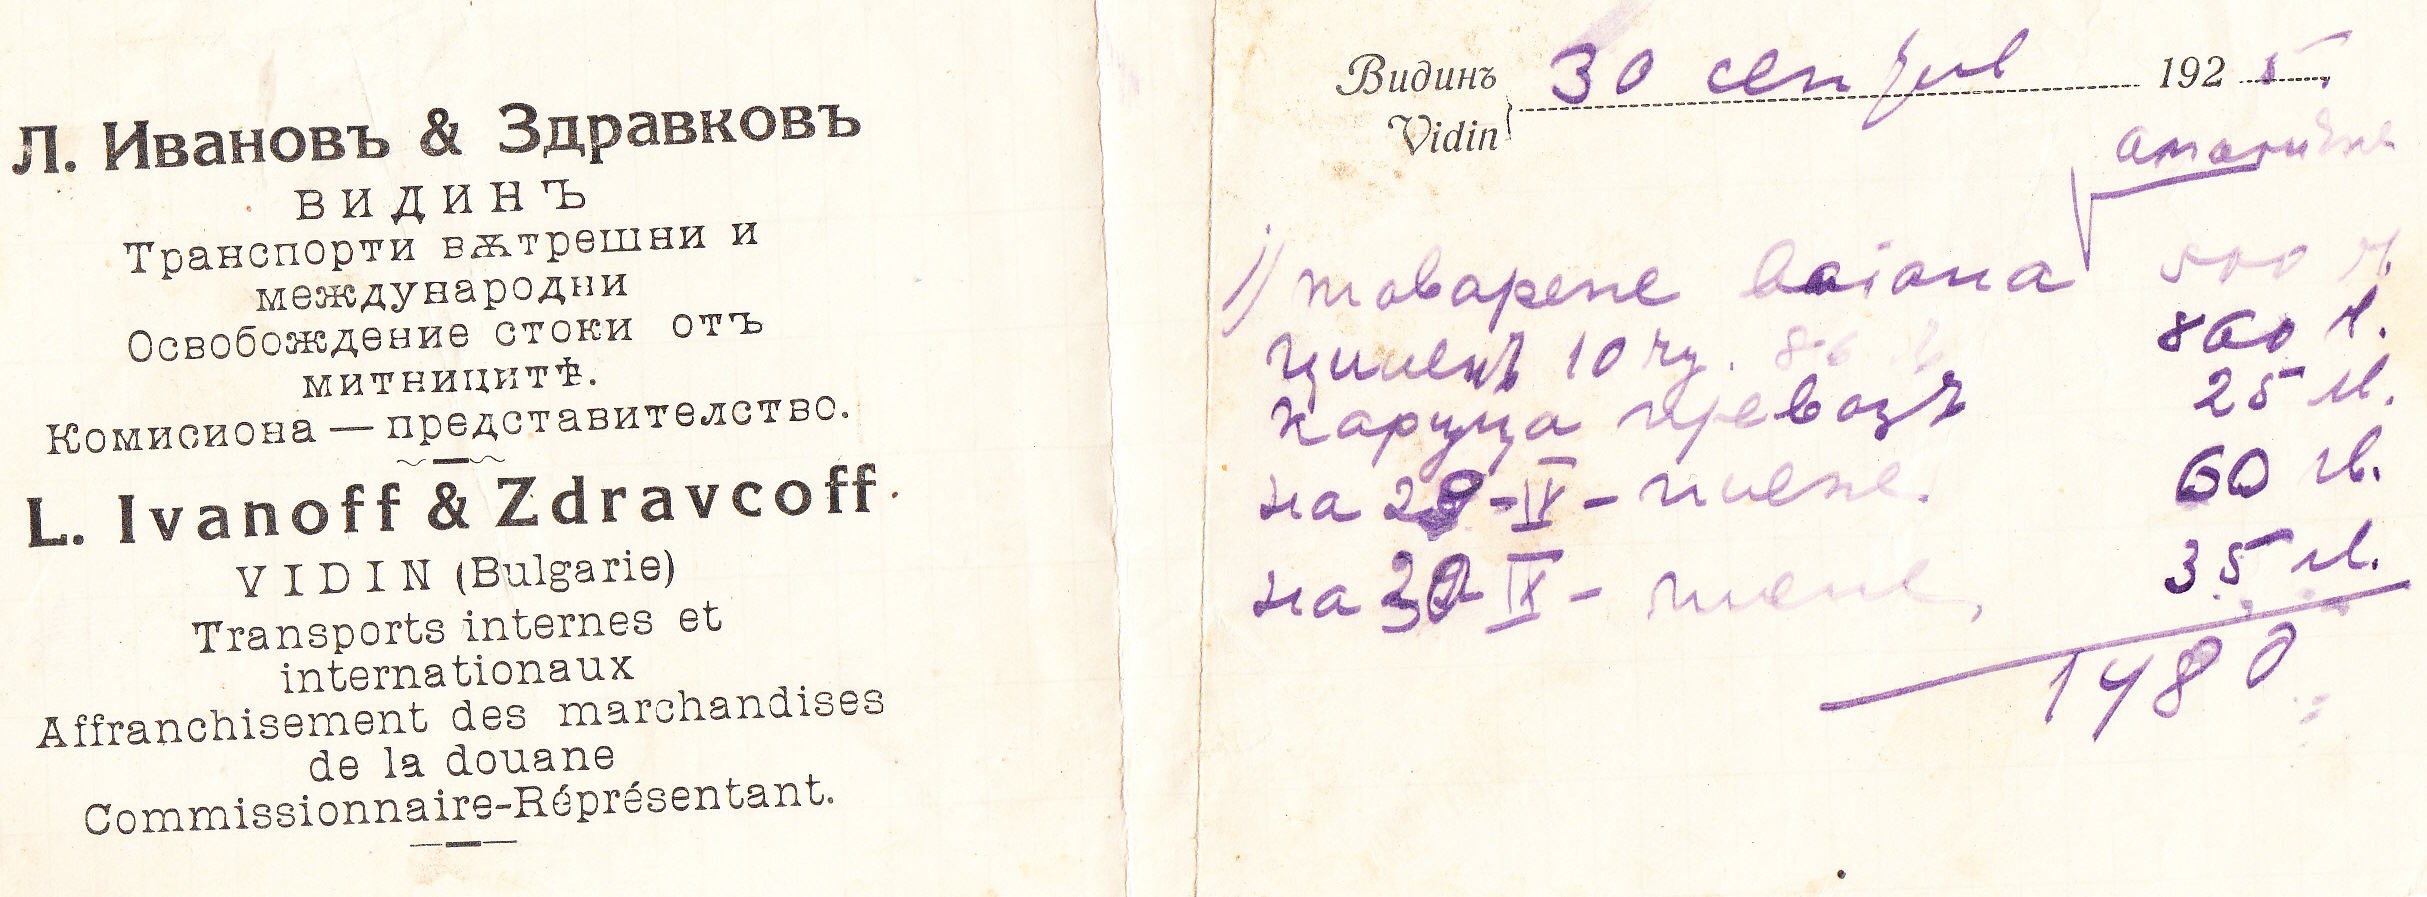 Л. Ивановъ & Здравковъ
ВИДИНЪ
Транспорти вѫтрешни и
международни
Освобождение стоки отъ
митницитѣ.
Комисиона — представителство.
L. Ivanoff & Zdravcoff.
VIDIN (Bulgarie)
Transports internes et
internationaux
Affranchisement des marchandises
de la douane
Commissionnaire-Réprésentant.
Видинъ 30 септемв 192 5.
Vidin
1) товарене вагона 500 л.
10 чу. 860 л.
каруца превозъ 25 лв.
на 29-IX- 60 лв.
на 30 IX- 35 лв.
1480